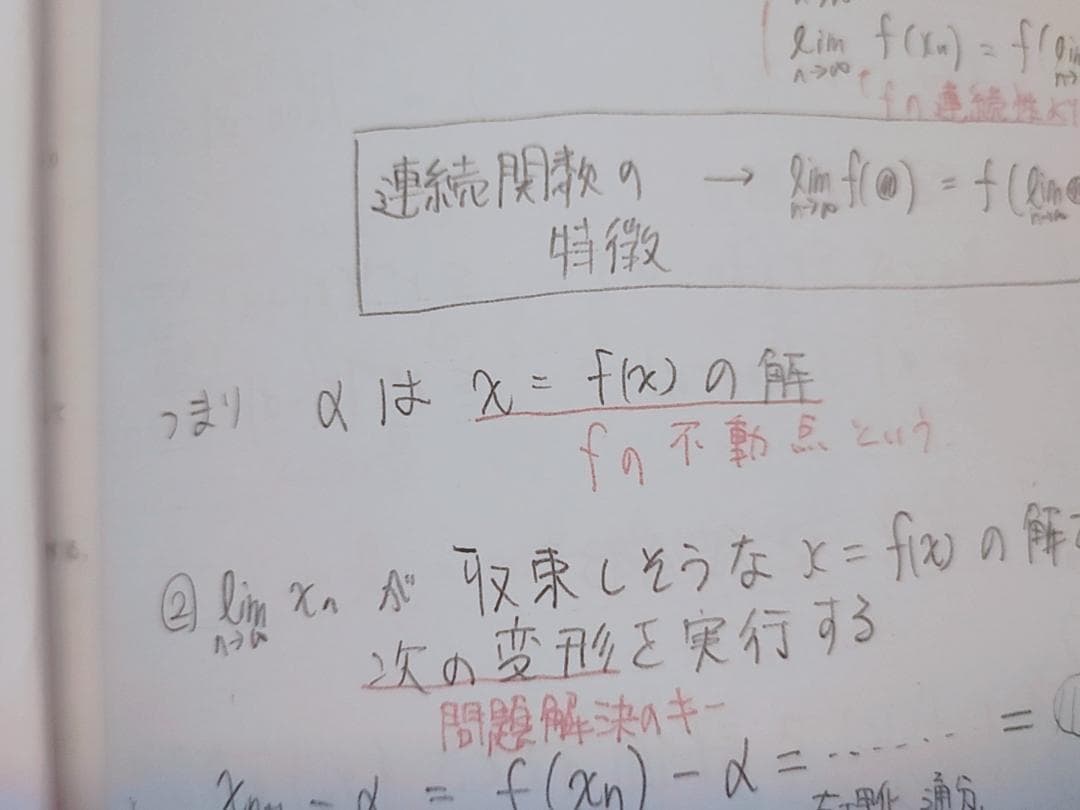 lim f(xn) = f(lim
n→∞
fの連続性より
連続関数の → lim f(@) = f(lim
n→∞
特徴
つまり αは x = f(x) の解
fの不動点という
② lim xn が 収束しそうな x = f(x) の解
n→∞
次の変形を実行する
問題解決のキー
- α = f(xn) - α = ........ =
有理化 通分